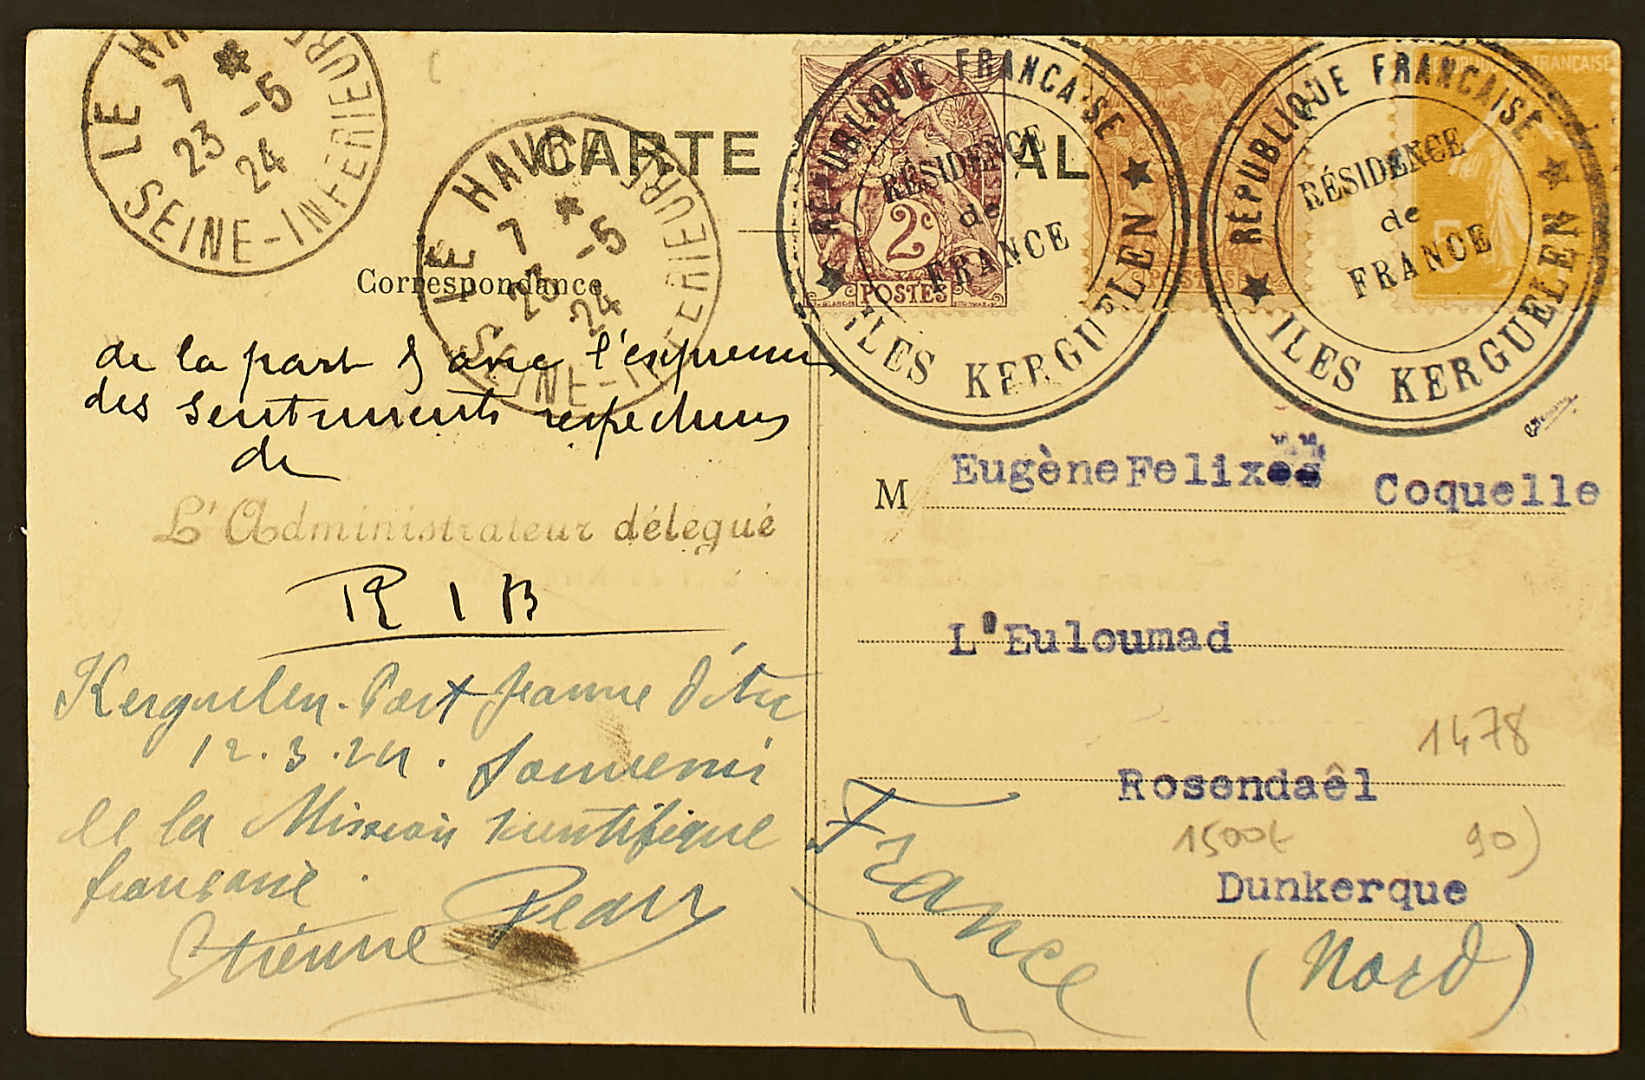 LE HAVRE
7 * -5
23
24
SEINE-INFERIEURE
LE HAVRE
7 * -5
23
24
SEINE-INFERIEURE
CARTE
AL
2c
POSTES
REPUBLIQUE FRANCAISE
RÉSIDENCE
de
FRANCE
ILES KERGUELEN
POSTES
REPUBLIQUE FRANÇAISE
5
REPUBLIQUE FRANCAISE
RÉSIDENCE
de
FRANCE
ILES KERGUELEN
Correspondance
de la part & avec l'expression
des sentiments respectueux
de
L'Administrateur délegué
R I B
Kerguelen. Port Jeanne d'Arc
12.3.24. Souvenir
de la Mission scientifique
française.
Etienne Peau
M EugèneFelix Coquelle
L'Euloumad
1478
Rosendaêl
1500t 90)
Dunkerque
France
(Nord)